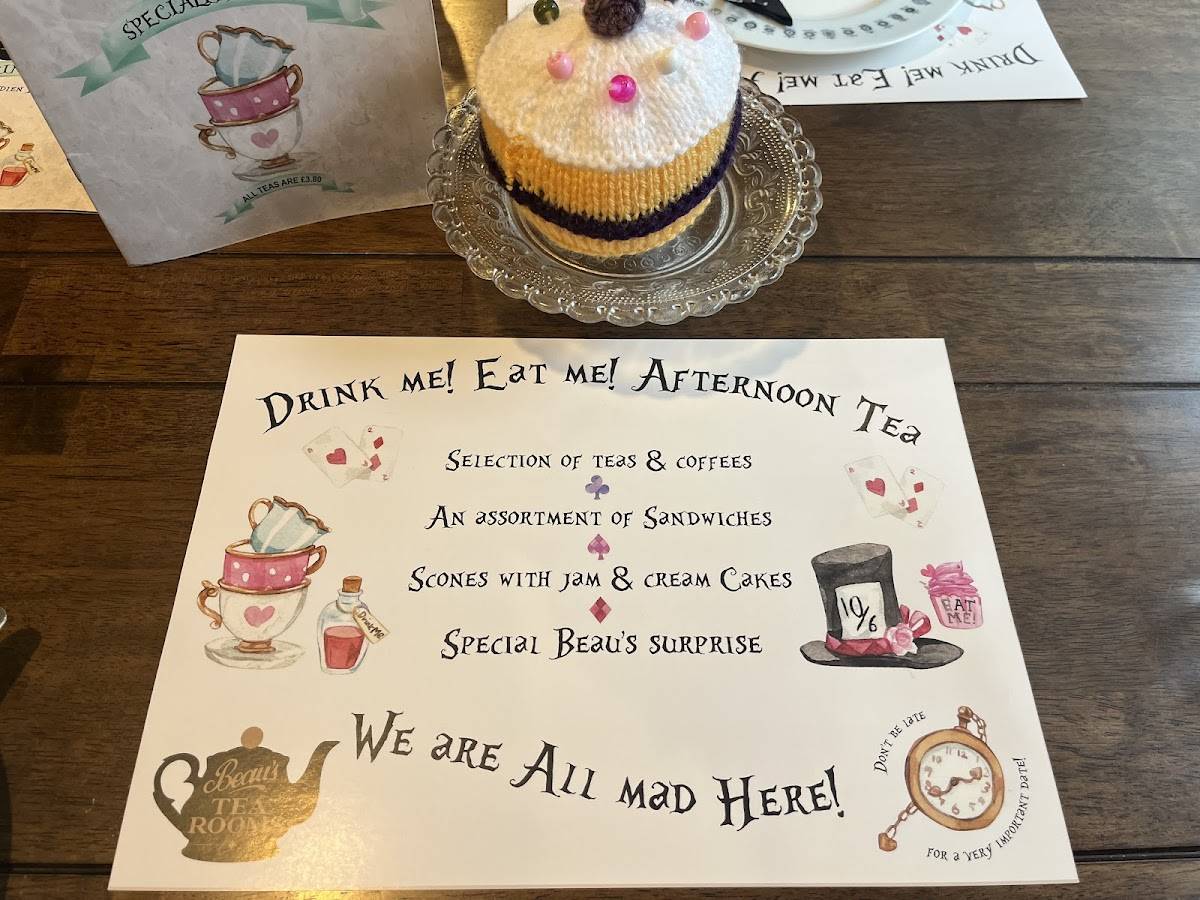 ALL TEAS ARE £3.80
DRINK ME! EAT ME!
DRINK ME! EAT ME! AFTERNOON TEA
SELECTION OF TEAS & COFFEES
AN ASSORTMENT OF SANDWICHES
SCONES WITH JAM & CREAM CAKES
SPECIAL BEAU'S SURPRISE
DRINK ME!
10/6
EAT
ME!
WE ARE ALL MAD HERE!
Beau's
TEA
ROOMS
DON'T BE LATE
FOR A VERY IMPORTANT DATE!